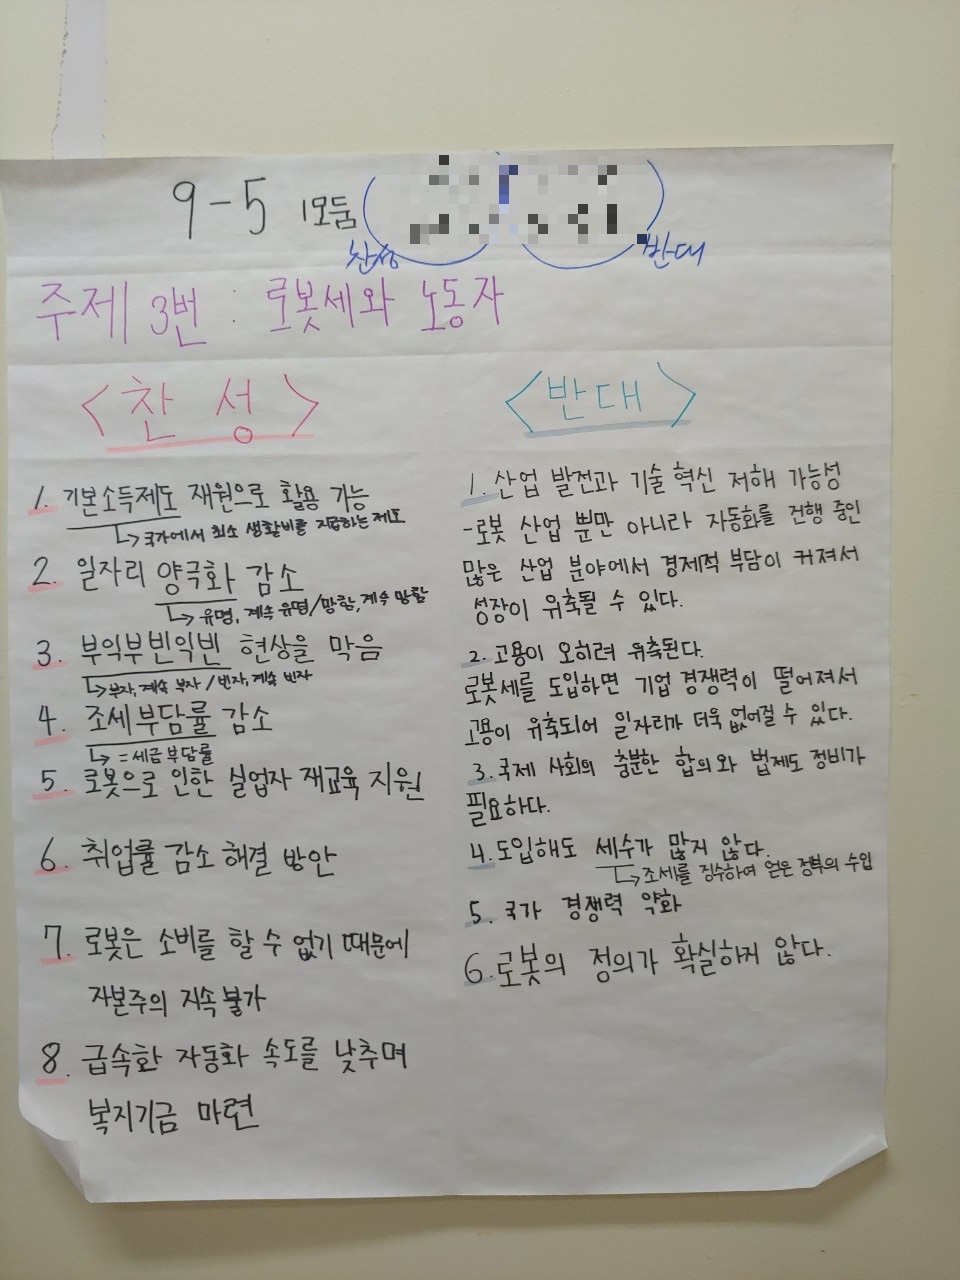 9-5 1모둠
찬성
반대
주제 3번 : 로봇세와 노동자
<찬성>
1. 기본소득제도 재원으로 활용 가능
↳ 국가에서 최소 생활비를 지급하는 제도
2. 일자리 양극화 감소
↳ 유명, 계속 유명/망함, 계속 망함
3. 부익부빈익빈 현상을 막음
↳ 부자, 계속 부자/빈자, 계속 빈자
4. 조세부담률 감소
↳ =세금부담률
5. 로봇으로 인한 실업자 재교육 지원
6. 취업률 감소 해결 방안
7. 로봇은 소비를 할 수 없기 때문에
자본주의 지속 불가
8. 급속화 자동화 속도를 낮추며
복지기금 마련
<반대>
1. 산업 발전과 기술 혁신 저해 가능성
-로봇 산업 뿐만 아니라 자동화를 진행 중인
많은 산업 분야에서 경제적 부담이 커져서
성장이 위축될 수 있다.
2. 고용이 오히려 위축된다.
로봇세를 도입하면 기업 경쟁력이 떨어져서
고용이 위축되어 일자리가 더욱 없어질 수 있다.
3. 국제 사회의 충분한 합의와 법제도 정비가
필요하다.
4. 도입해도 세수가 많지 않다.
↳ 조세를 징수하여 얻은 정부의 수입
5. 국가 경쟁력 약화
6. 로봇의 정의가 확실하지 않다.